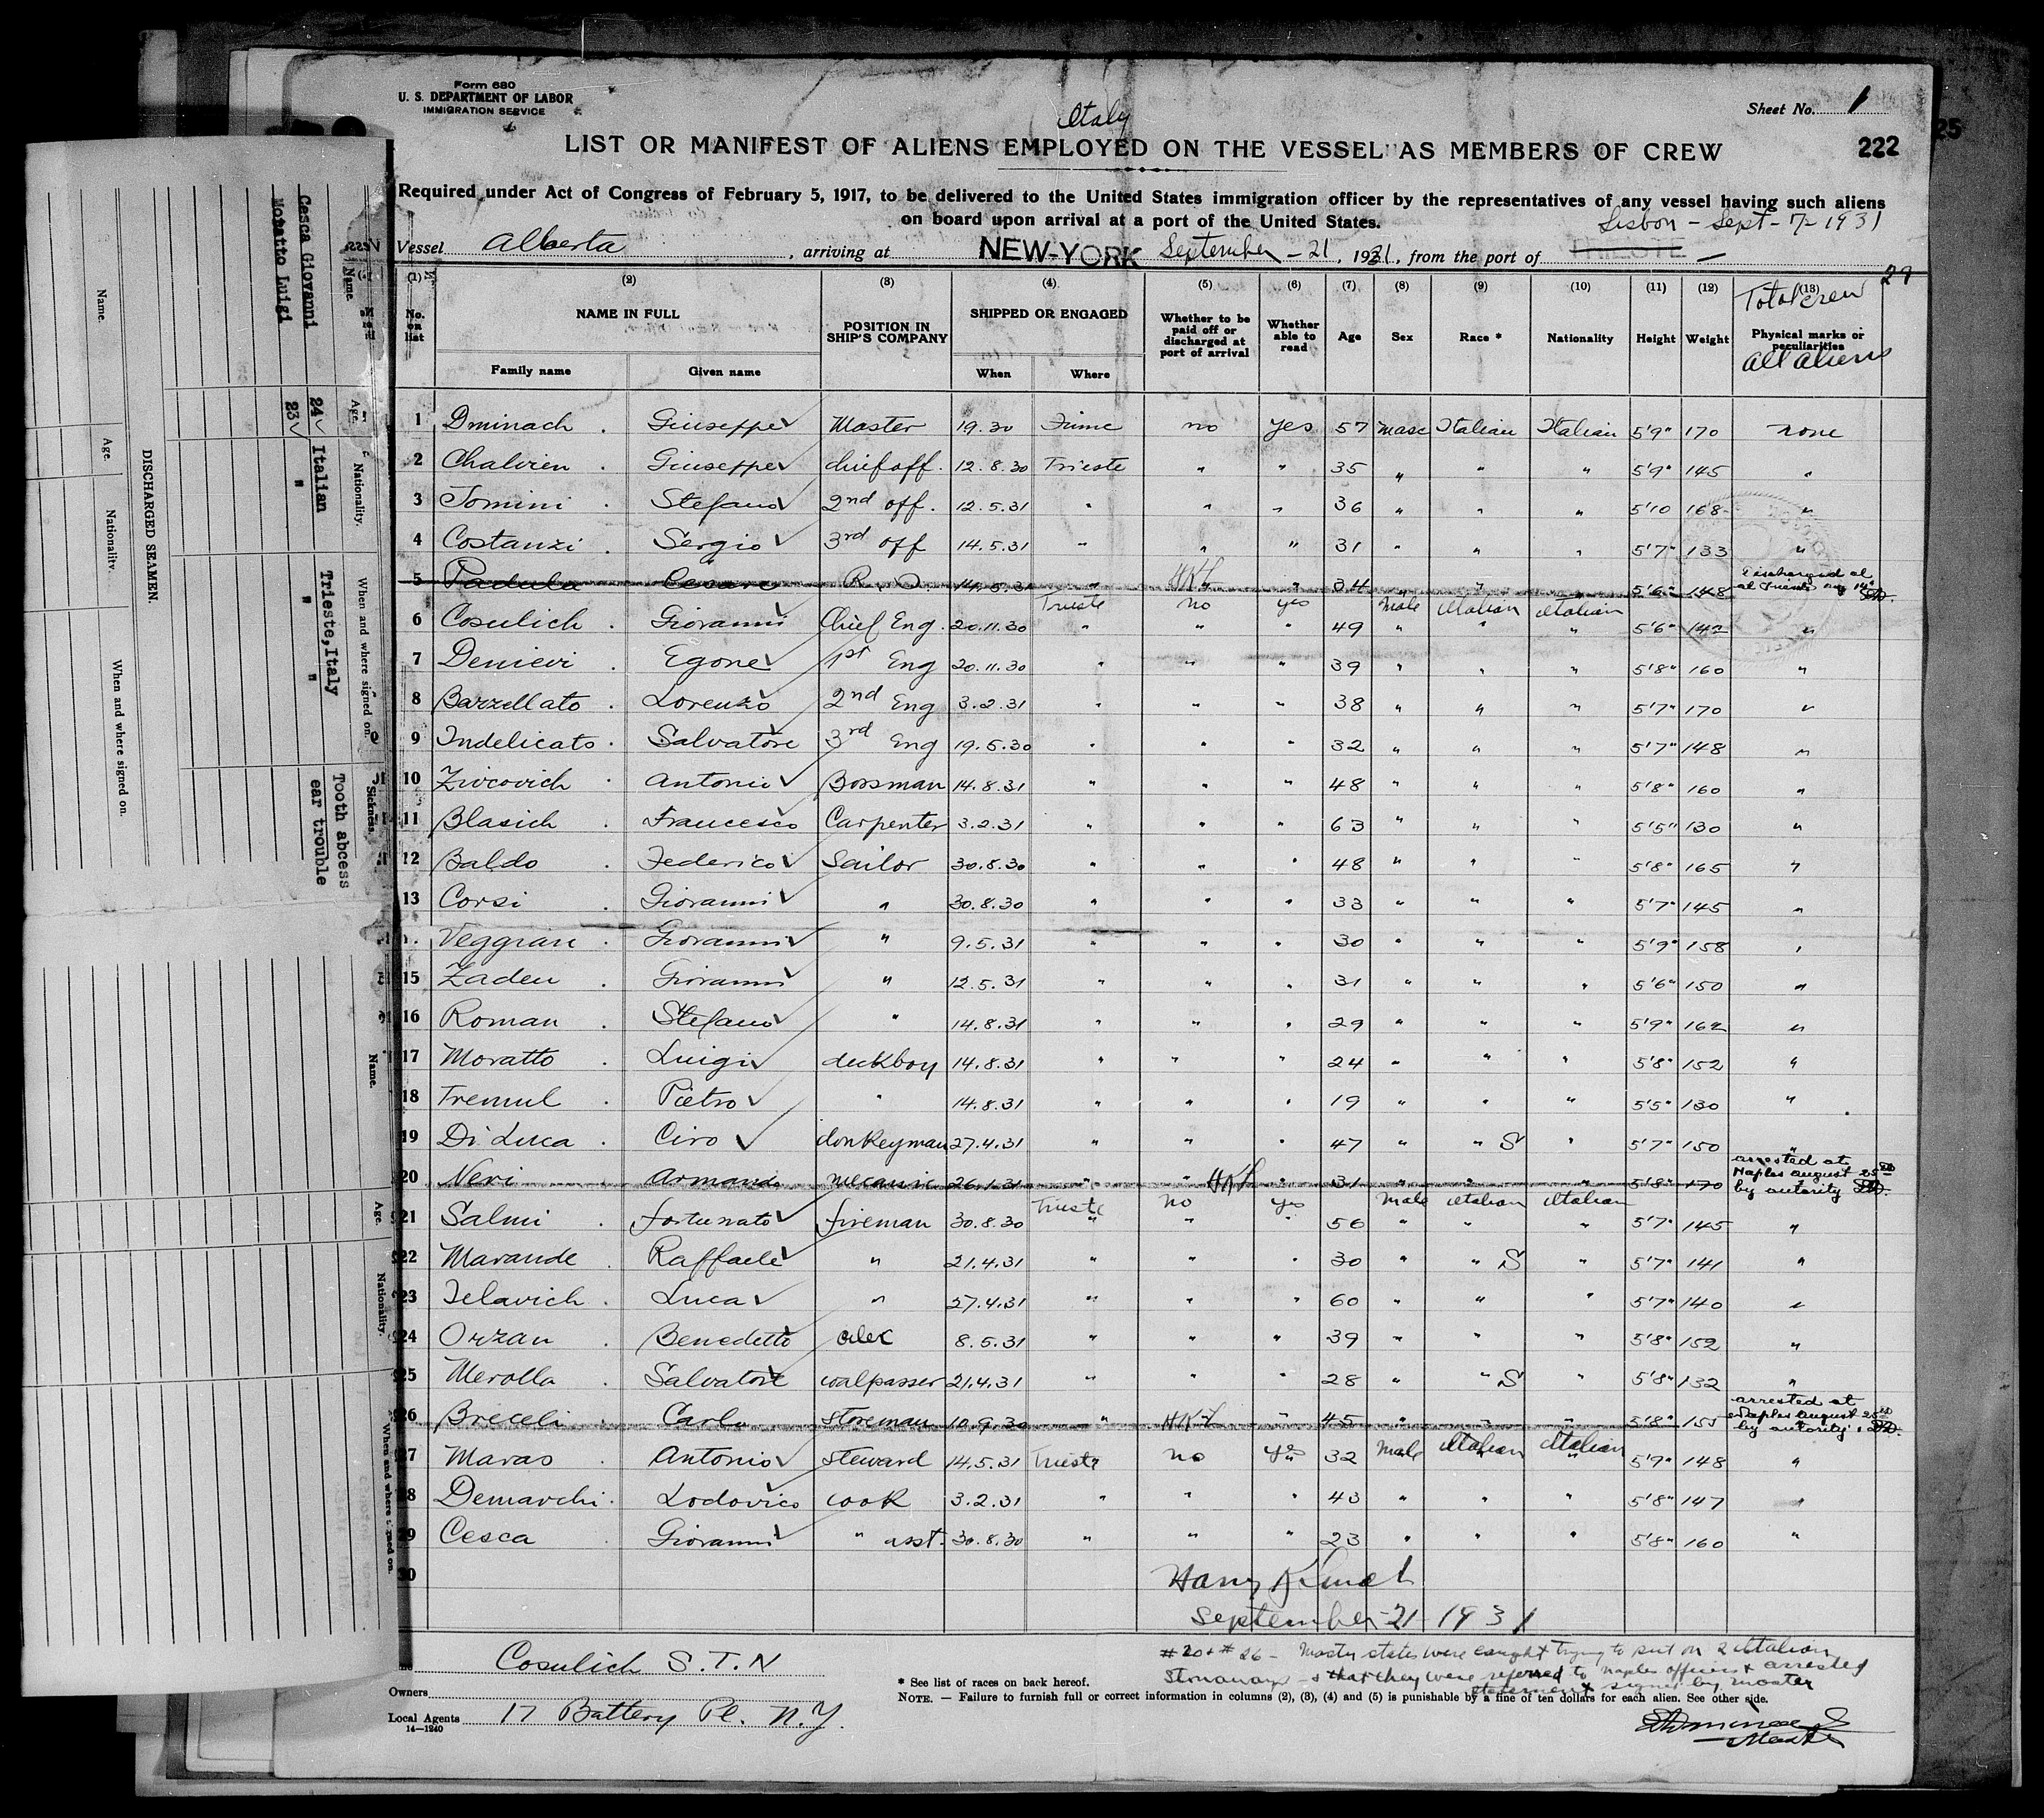 Form 680
U. S. DEPARTMENT OF LABOR
IMMIGRATION SERVICE
Sheet No. 1
Italy
LIST OR MANIFEST OF ALIENS EMPLOYED ON THE VESSEL AS MEMBERS OF CREW
222
25
Required under Act of Congress of February 5, 1917, to be delivered to the United States immigration officer by the representatives of any vessel having such aliens
on board upon arrival at a port of the United States.
Lisbon - Sept - 7 - 1931
Vessel Alberta, arriving at NEW-YORK September - 21, 1931, from the port of TRIESTE
29
(1) (2) (3) (4) (5) (6) (7) (8) (9) (10) (11) (12) (13)
Total crew
No. on list NAME IN FULL POSITION IN SHIP'S COMPANY SHIPPED OR ENGAGED Whether to be paid off or discharged at port of arrival Whether able to read Age Sex Race * Nationality Height Weight Physical marks or peculiarities
all aliens
Family name Given name When Where
1 Dminach Giuseppe Master 19.30 Fiume no yes 57 masc Italian Italian 5'9" 170 none
2 Chalvien Giuseppe chief off. 12.8.30 Trieste " " 35 " " " 5'9" 145 "
3 Tomini Stefano 2nd off. 12.5.31 " " " 36 " " " 5'10 168 "
4 Costanzi Sergio 3rd off 14.5.31 " " " 31 " " " 5'7" 133 "
5 Padula Cesare R.O. 14.5.31 " HKL " 34 " " " 5'6" 148 Discharged at
Trieste no yes male Italian Italian
6 Cosulich Giovanni Chief Eng. 20.11.30 " " " 49 " " " 5'6" 142 "
7 Denievi Egone 1st Eng 20.11.30 " " " 39 " " " 5'8" 160 "
8 Barzellato Lorenzo 2nd Eng 3.2.31 " " " 38 " " " 5'7" 170 "
9 Indelicato Salvatore 3rd Eng 19.5.30 " " " 32 " " " 5'7" 148 "
10 Zivcovich Antonio Bossman 14.8.31 " " " 48 " " " 5'8" 160 "
11 Blasich Francesco Carpenter 3.2.31 " " " 63 " " " 5'5" 130 "
12 Baldo Federico Sailor 30.8.30 " " " 48 " " " 5'8" 165 "
13 Corsi Giovanni " 30.8.30 " " " 33 " " " 5'7" 145 "
Veggian Giovanni " 9.5.31 " " " 30 " " " 5'9" 158 "
15 Zaden Giovanni " 12.5.31 " " " 31 " " " 5'6" 150 "
16 Roman Stefano " 14.8.31 " " " 29 " " " 5'9" 162 "
17 Moratto Luigi deckboy 14.8.31 " " " 24 " " " 5'8" 152 "
18 Tremul Pietro " 14.8.31 " " " 19 " " " 5'5" 130 "
19 Di Luca Ciro donkeyman 27.4.31 " " " 47 " " S " 5'7" 150 "
20 Neri Armando mecanic 26.1.31 " HKL " 31 " " " 5'8" 170 arrested at Naples august 25 by autority
Trieste no yes male Italian Italian
21 Salmi Fortunato fireman 30.8.30 " " " 56 " " " 5'7" 145 "
22 Marande Raffaele " 21.4.31 " " " 30 " " S " 5'7" 141 "
23 Telavich Luca " 27.4.31 " " " 60 " " " 5'7" 140 "
24 Orzan Benedetto 8.5.31 " " " 39 " " " 5'8" 152 "
25 Merolla Salvatore coalpasser 21.4.31 " " " 28 " " S " 5'8" 132 "
26 Breceli Carlo storeman 10.9.30 " HKL " 45 " " " 5'8" 155 arrested at Naples august 25 by autority
27 Maras Antonio steward 14.5.31 Trieste no yes 32 male Italian Italian 5'9" 148 "
28 Demarchi Lodovico cook 3.2.31 " " " 43 " " " 5'8" 147 "
29 Cesca Giovanni " asst. 30.8.30 " " " 23 " " " 5'8" 160 "
30
September 21 - 1931
Cosulich S.T.N
#20 & #26 - Master states were caught trying to put on 2 Italian
Stowaways & that they were referred to Naples officers & arrested
statement signed by master
* See list of races on back hereof.
Owners
NOTE. — Failure to furnish full or correct information in columns (2), (3), (4) and (5) is punishable by a fine of ten dollars for each alien. See other side.
Local Agents 17 Battery Pl. N.Y.
14—1240
Master
DISCHARGED SEAMEN.
Name. Age. Nationality. When and where signed on.
Name. Age. Nationality. When and where signed on. Sickness.
Cesca Giovanni 24 Italian Trieste, Italy Tooth abcess
Moratto Luigi 23 " " " ear trouble
Name. Age. Nationality. When and where signed on.